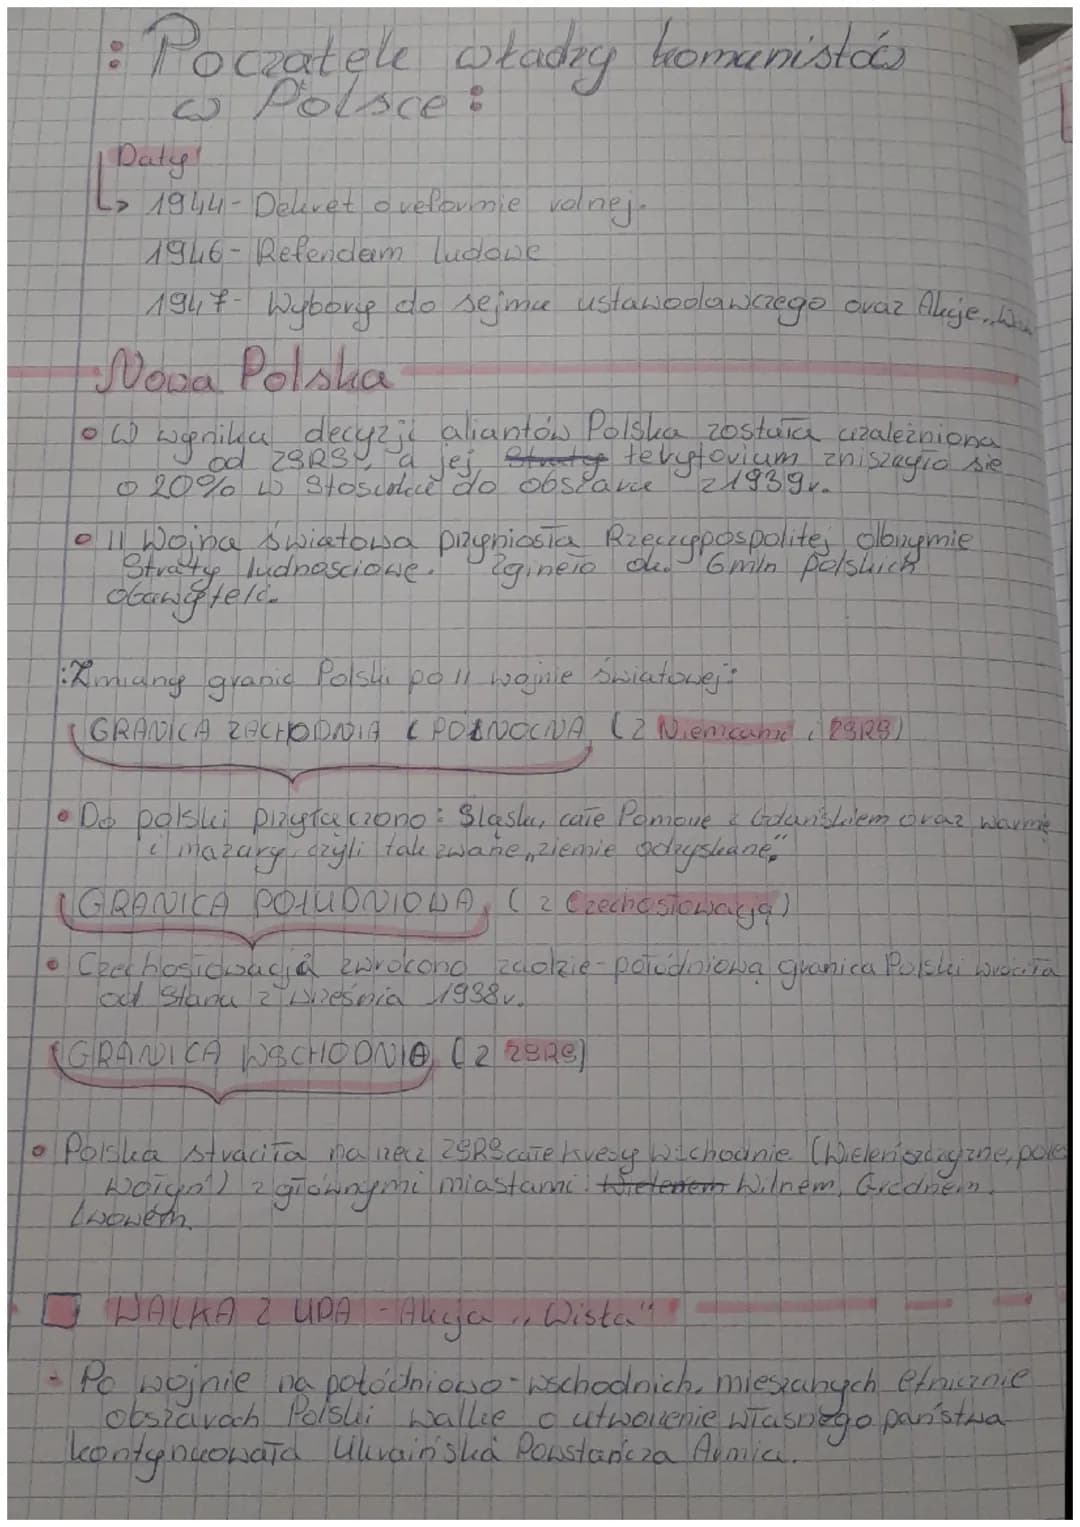 : Początek władzy komunistów
w Polsce :
Daty
↳ 1944 - Dekret o reformie rolnej.
1946 - Referendum ludowe
1947 - Wybory do sejmu ustawodawczego oraz Akcje „
Nowa Polska
• W wyniku decyzji aliantów Polska została uzależniona
od ZSRS, a jej Straty terytorium zniszayło się
o 20% w Stosunku do obszaru z 1939r.
• II Wojna światowa przyniosła Rzeczypospolitej olbrzymie
Straty ludnościowe. Zginęło ok. 6mln polskich
obawateli.
: Zmiany granic Polski po II wojnie światowej:
GRANICA ZACHODNIA I PÓŁNOCNA (z Niemcami i ZSRS)
• Do polski przyłączono: Śląsk, całe Pomorze z Gdańskiem oraz warmię
i mazury, czyli tak zwane „ziemie odzyskane”
GRANICA POŁUDNIOWA (z Czechosłowacją)
• Czechosłowacją zwrócono zaolzie - połódniową granica Polski wróciła
od Stanu z września 1938r.
GRANICA WSCHODNIA (z ZSRS)
• Polska straciła na rzecz ZSRS całe kresy wschodnie. (
Wołyń) z głównymi miastami: Wilnem, Grodnem,
Lwowem.
WALKA Z UPA - Akcja „Wisła”
- Po wojnie na połódniowo-wschodnich, mieszanych etnicznie
obszarach Polski walkę o utworzenie własnego państwa
kontynuowała Ukraińska Powstańcza Armia.